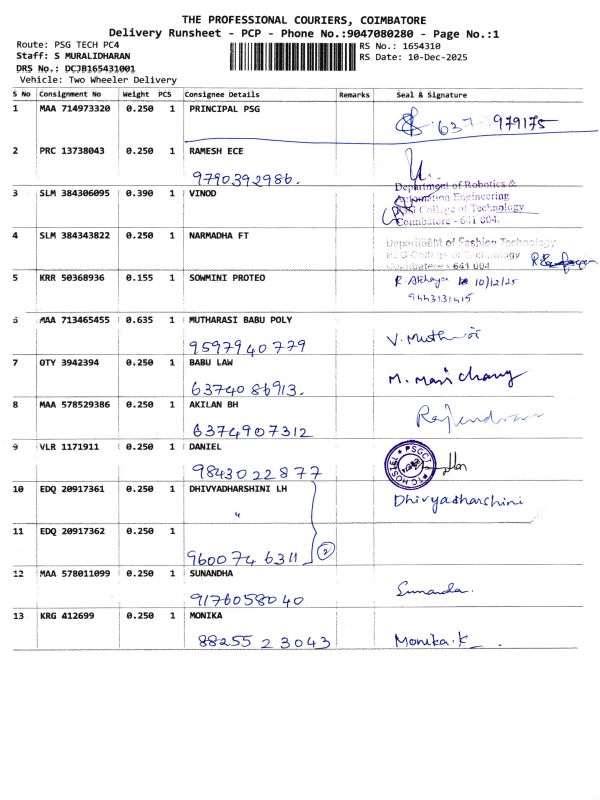 THE PROFESSIONAL COURIERS, COIMBATORE
Delivery Runsheet - PCP - Phone No.:9047080280 - Page No.:1
Route: PSG TECH PC4
RS No.: 1654310
Staff: S MURALIDHARAN
RS Date: 10-Dec-2025
DRS No.: DCJB165431001
Vehicle: Two Wheeler Delivery
S No Consignment No Weight PCS Consignee Details Remarks Seal & Signature
1 MAA 714973320 0.250 1 PRINCIPAL PSG
979175
2 PRC 13738043 0.250 1 RAMESH ECE
9790392986.
Department of Robotics &
Automation Engineering
PSG College of Technology
Coimbatore - 641 004.
3 SLM 384306095 0.390 1 VINOD
4 SLM 384343822 0.250 1 NARMADHA FT
Department of Fashion Technology
PSG College of Technology
Coimbatore - 641 004
5 KRR 50368936 0.155 1 SOWMINI PROTEO
10/12/25
9443131415
6 MAA 713465455 0.635 1 MUTHARASI BABU POLY
9597940779
7 OTY 3942394 0.250 1 BABU LAW
6374086913.
M. Mari Chang
8 MAA 578529386 0.250 1 AKILAN BH
6374907312
Rajendran
9 VLR 1171911 0.250 1 DANIEL
9843022877
PSGCT
HOSTEL
10 EDQ 20917361 0.250 1 DHIVYADHARSHINI LH
Dhivyadharshini
"
11 EDQ 20917362 0.250 1
9600746311 2
12 MAA 578011099 0.250 1 SUNANDHA
9176058040
Sunanda.
13 KRG 412699 0.250 1 MONIKA
8825523043
Monika.K